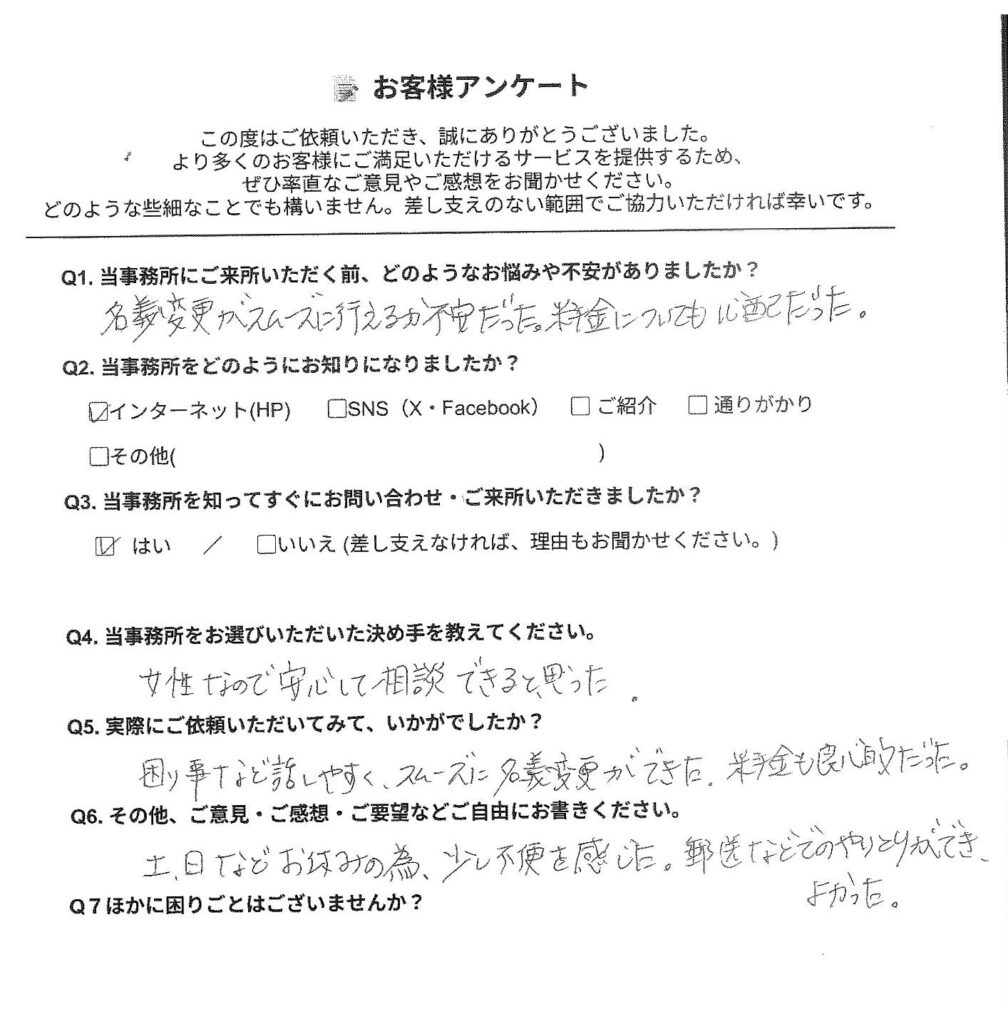 お客様アンケート
この度はご依頼いただき、誠にありがとうございました。
より多くのお客様にご満足いただけるサービスを提供するため、
ぜひ率直なご意見やご感想をお聞かせください。
どのような些細なことでも構いません。差し支えのない範囲でご協力いただければ幸いです。
Q1. 当事務所にご来所いただく前、どのようなお悩みや不安がありましたか？
名義変更がスムーズに行えるか不安だった。料金についても心配だった。
Q2. 当事務所をどのようにお知りになりましたか？
☑インターネット(HP) □SNS（X・Facebook） □ ご紹介 □ 通りがかり
□その他( )
Q3. 当事務所を知ってすぐにお問い合わせ・ご来所いただきましたか？
☑ はい ／ □いいえ (差し支えなければ、理由もお聞かせください。)
Q4. 当事務所をお選びいただいた決め手を教えてください。
女性なので安心して相談できると、思った.
Q5. 実際にご依頼いただいてみて、いかがでしたか？
困り事など話しやすく、スムーズに名義変更ができた. 料金も良心的だった。
Q6. その他、ご意見・ご感想・ご要望などご自由にお書きください。
土、日などお休みの為、少し不便を感じた。郵送などでのやりとりができ、
よかった。
Q７ほかに困りごとはございませんか？